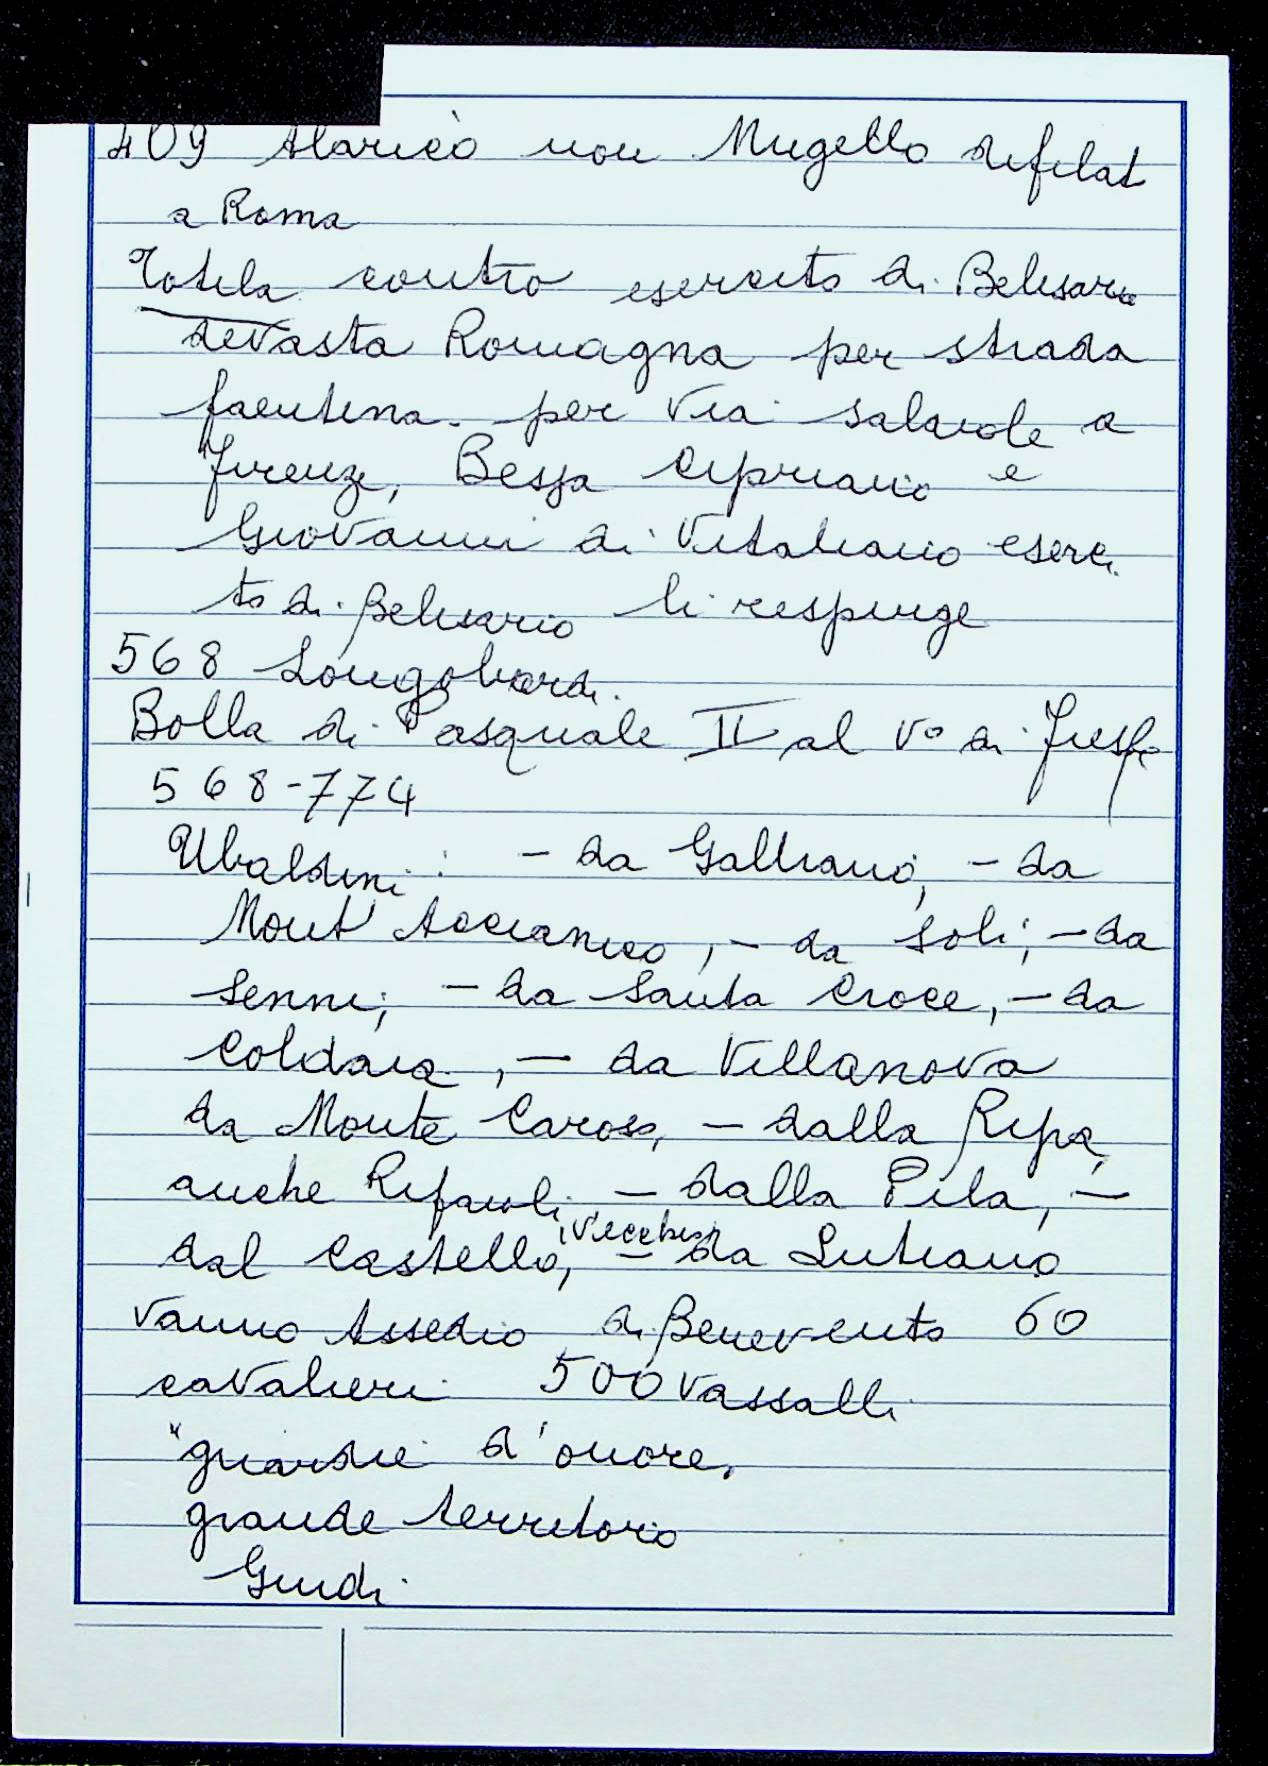 409 Alarico non Mugello difilat
a Roma
Totila contro esercito di Belisario
devasta Romagna per strada
faentina. per via salaiole a
Firenze, Bessa Cipriano e
Giovanni di Vitaliano eserci
to di Belisario li respinge
568 Longobardi.
Bolla di Pasquale II al Vº di
568-774
Ubaldini: - da Galliano, - da
Mont'Accianico, - da Soli; - da
Senni; - da Santa Croce, - da
Coldaia, - da Villanova
da Monte Caroso, - dalla Ripa,
anche Rifaioli, - dalla Pila, -
dal Castello, Vecchio, - da Lutiano
vanno Assedio di Benevento 60
cavalieri 500 vassalli
"guardie d'onore,
grande territorio
Guidi